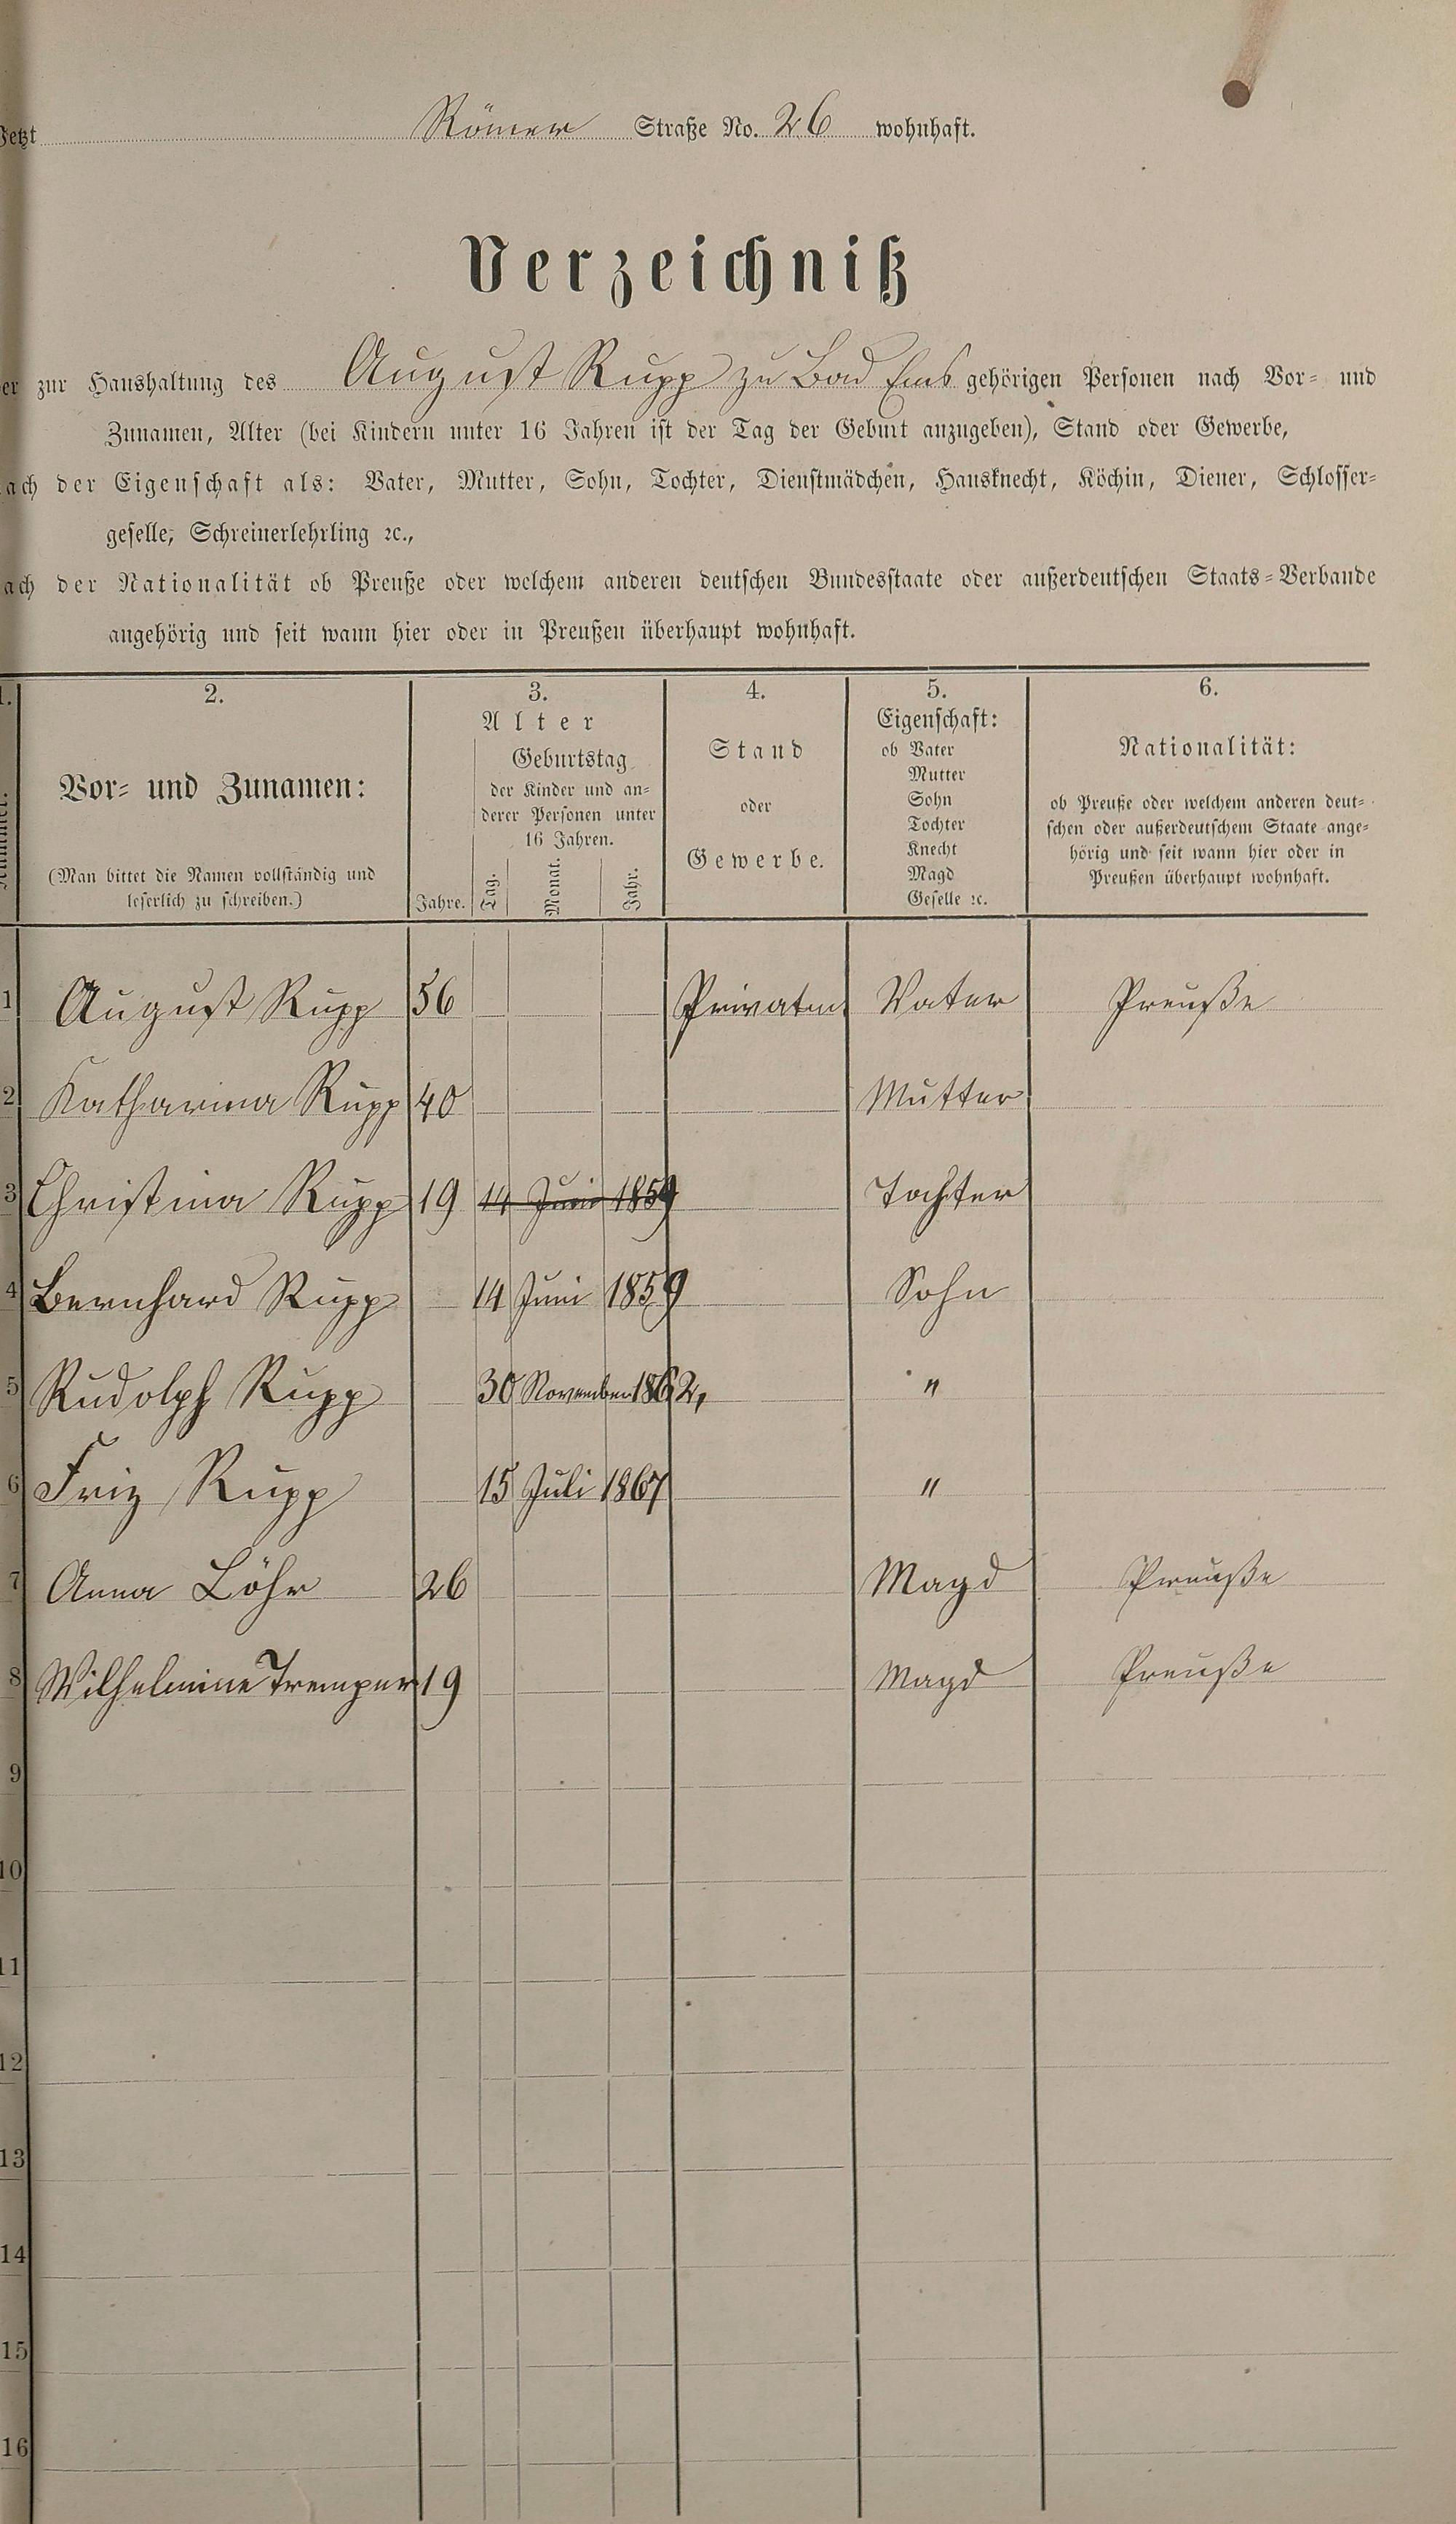 Jetzt Römer Straße No. 26 wohnhaft.
Verzeichniß
er zur Haushaltung des August Rupp zu Bad Ems gehörigen Personen nach Vor- und
Zunamen, Alter (bei Kindern unter 16 Jahren ist der Tag der Geburt anzugeben), Stand oder Gewerbe,
ach der Eigenschaft als: Vater, Mutter, Sohn, Tochter, Dienstmädchen, Hausknecht, Köchin, Diener, Schlosser-
geselle, Schreinerlehrling ꝛc.,
ach der Nationalität ob Preuße oder welchem anderen deutschen Bundesstaate oder außerdeutschen Staats-Verbande
angehörig und seit wann hier oder in Preußen überhaupt wohnhaft.
1.
2.
Vor- und Zunamen:
(Man bittet die Namen vollständig und
leserlich zu schreiben.)
3.
Alter
Jahre.
Geburtstag
der Kinder und an-
derer Personen unter
16 Jahren.
Tag.
Monat.
Jahr.
4.
Stand
oder
Gewerbe.
5.
Eigenschaft:
ob Vater
Mutter
Sohn
Tochter
Knecht
Magd
Geselle ꝛc.
6.
Nationalität:
ob Preuße oder welchem anderen deut-
schen oder außerdeutschem Staate ange-
hörig und seit wann hier oder in
Preußen überhaupt wohnhaft.
1 August Rupp 56 Vater Preuße
2 Katharina Rupp 40 Mutter
3 Christina Rupp 19 14 Juni 1859 Tochter
4 Bernhard Rupp 14 Juni 1859 Sohn
5 Rudolph Rupp 30 November 1862, "
6 Friz Rupp 15 Juli 1867 "
7 Anna Löhr 26 Magd Preuße
8 Wilhelmine Tremper 19 Magd Preuße
9
10
11
12
13
14
15
16